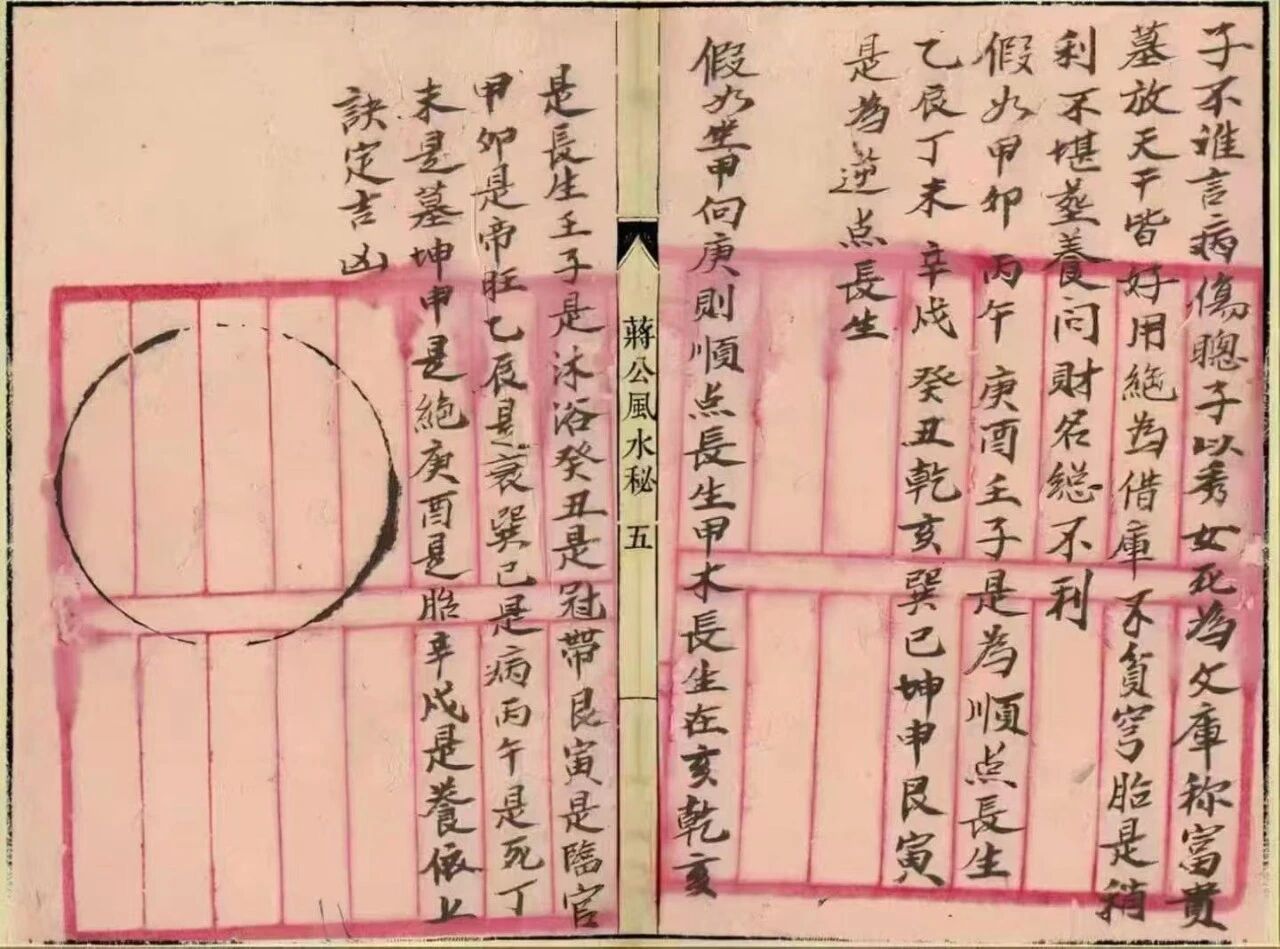 子不谁言病傷聰子以秀女死為文庫称富貴
墓放天干皆好用絶為借庫不貧穹胎是稍
利不堪塟養问財名総不利
假如甲卯丙午庚酉壬子是為順点長生
乙辰丁未辛戌癸丑乾亥巽巳坤申艮寅
是為逆点長生
假如坐甲向庚則順点長生甲木長生在亥乾亥
蔣公風水秘 五
是長生壬子是沐浴癸丑是冠帶艮寅是臨官
甲卯是帝旺乙辰是衰巽已是病丙午是死丁
未是墓坤申是絶庚酉是胎辛戌是養依上
訣定吉凶